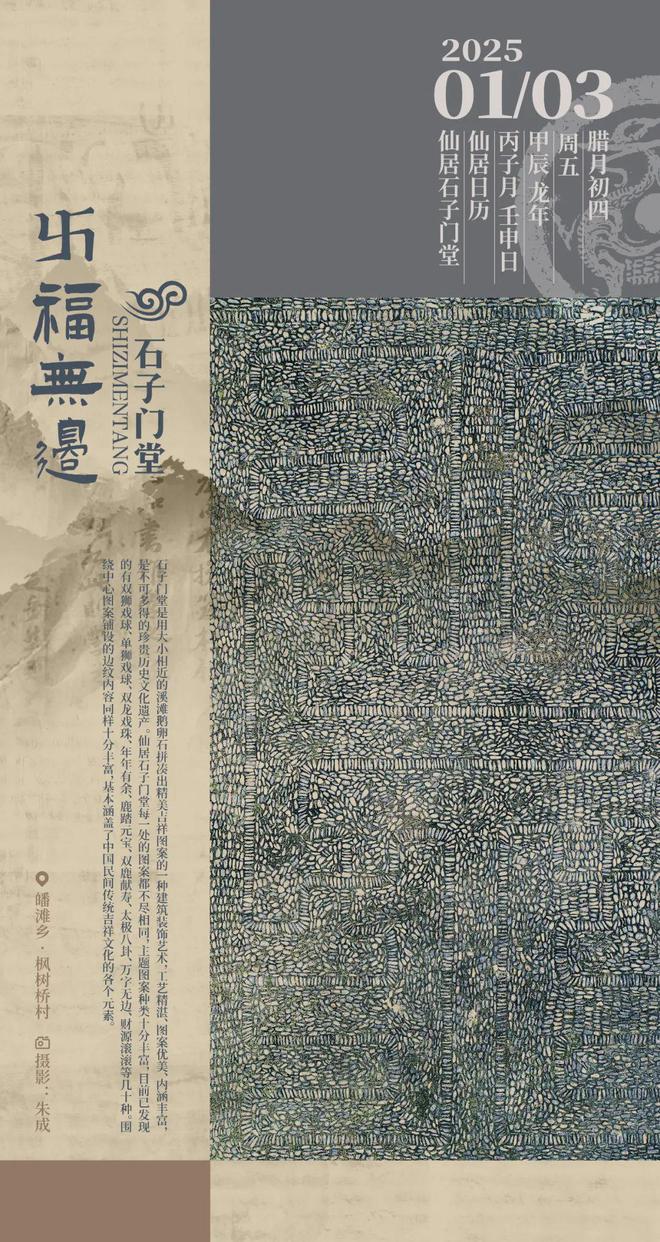 2025
01/03
腊月初四
周五
甲辰 龙年
丙子月 壬申日
仙居日历
仙居石子门堂
卐福無邊
石子门堂
SHIZIMENTANG
石子门堂是用大小相近的溪滩鹅卵石拼凑出精美吉祥图案的一种建筑装饰艺术,工艺精湛、图案优美、内涵丰富,
是不可多得的珍贵历史文化遗产。仙居石子门堂每一处的图案都不尽相同,主题图案种类十分丰富,目前已发现
的有双狮戏球、单狮戏球、双龙戏珠、年年有余、鹿踏元宝、双鹿献寿、太极八卦、万字无边、财源滚滚等几十种。围
绕中心图案铺设的边纹内容同样十分丰富,基本涵盖了中国民间传统吉祥文化的各个元素。
皤滩乡·枫树桥村 摄影:朱成